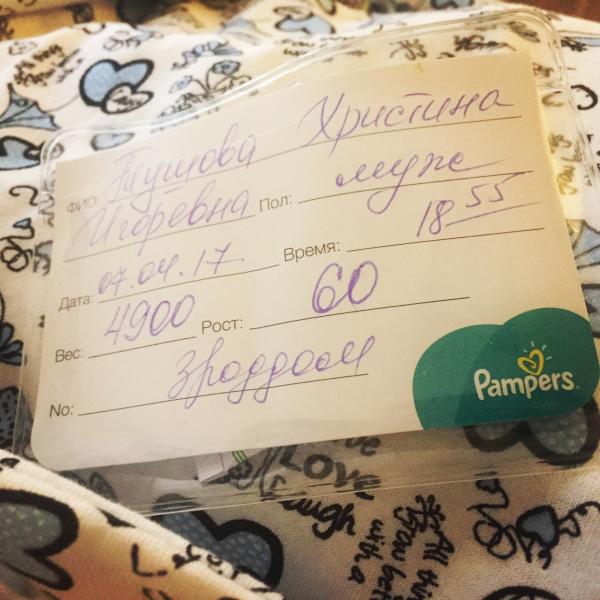 ФИО: Тушова Христина
Игоревна Пол: муж
Дата: 07.04.17 Время: 18 55
Вес: 4900 Рост: 60
No: 3роддом
Pampers
LOVE
Laugh
with a